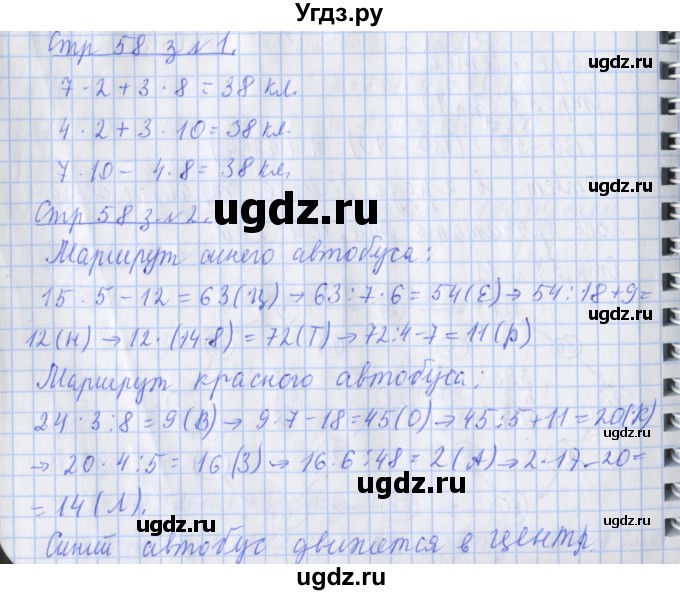 Угдз.ру
Стр 58 з №1.
7·2+3·8=38 кл.
4·2+3·10=38 кл.
7·10-4·8=38 кл.
Стр 58 з.№2.
Маршрут синего автобуса:
15·5-12=63(Ц)→63:7·6=54(Е)→54:18+9=
12(Н)→12·(14-8)=72(Т)→72:4-7=11(Р)
Маршрут красного автобуса:
24·3:8=9(В)→9·7-18=45(О)→45:5+11=20(К)
→20·4:5=16(З)→16·6:48=2(А)→2·17-20=
=14(Л).
Синий автобус движется в центр.
ugdz.ru
ugdz.ru
ugdz.ru
ugdz.ru
ugdz.ru
ugdz.ru
ugdz.ru
ugdz.ru
ugdz.ru